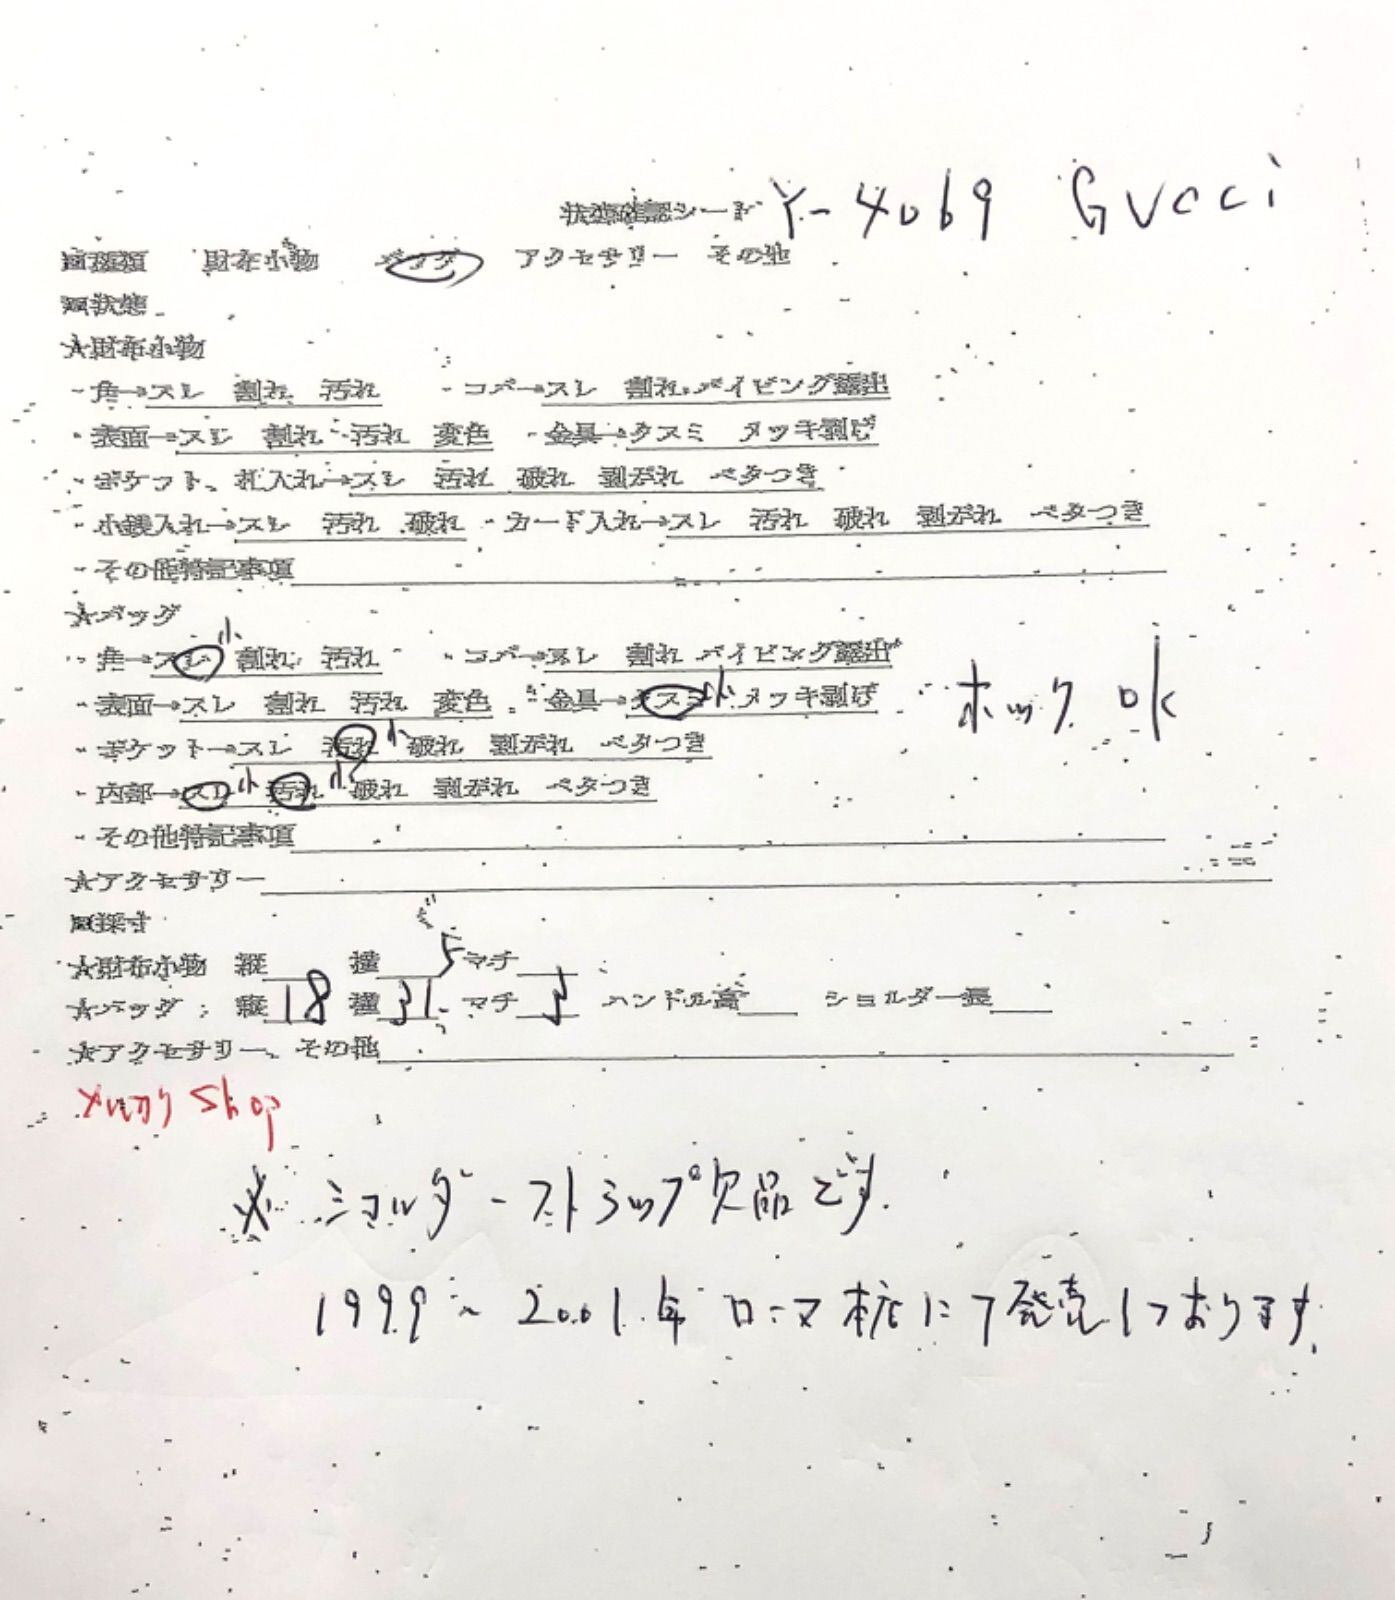 状態確認シート Y-4069 GUCCI
■種類 財布小物 バッグ アクセサリー その他
■状態
★財布小物
・角→スレ 割れ 汚れ ・コバ→スレ 割れ パイピング露出
・表面→スレ 割れ 汚れ 変色 ・金具→クスミ メッキ剥げ
・ポケット、札入れ→スレ 汚れ 破れ 剥がれ ベタつき
・小銭入れ→スレ 汚れ 破れ ・カード入れ→スレ 汚れ 破れ 剥がれ ベタつき
・その他特記事項
★バッグ
・角→スレ 小 割れ 汚れ ・コバ→スレ 割れ パイピング露出
・表面→スレ 割れ 汚れ 変色 ・金具→クスミ 小 メッキ剥げ ホック OK
・ポケット→スレ 汚れ 小 破れ 剥がれ ベタつき
・内部→スレ 小 汚れ 小 破れ 剥がれ ベタつき
・その他特記事項
★アクセサリー
■採寸
★財布小物 縦 横 マチ
★バッグ 縦 18 横 31.5 マチ 3 ハンドル高 ショルダー長
★アクセサリー、その他
メルカリ Shop
※ ショルダーストラップ欠品です.
1999~2001年ローマ本店にて発売しております.